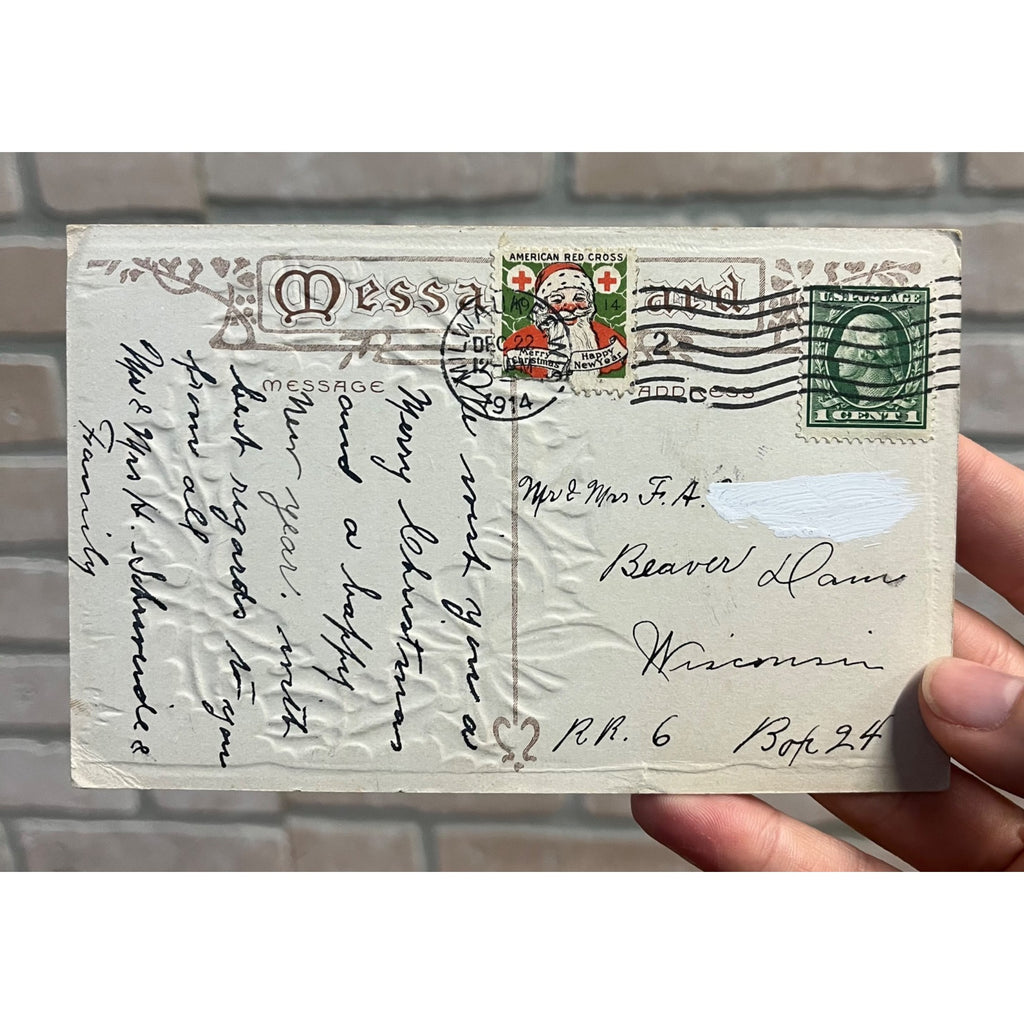 Message Card
AMERICAN RED CROSS
19 14
Merry Christmas
Happy New Year
DEC 22
12 M
1914
2
U.S. POSTAGE
1 CENT 1
MESSAGE
ADDRESS
We wish you a
Merry Christmas
and a happy
New year. with
best regards to you
from all
Mr & Mrs H. Schwinde &
Family
Mr & Mrs F. A.
Beaver Dam
Wisconsin
RR. 6 Box 24